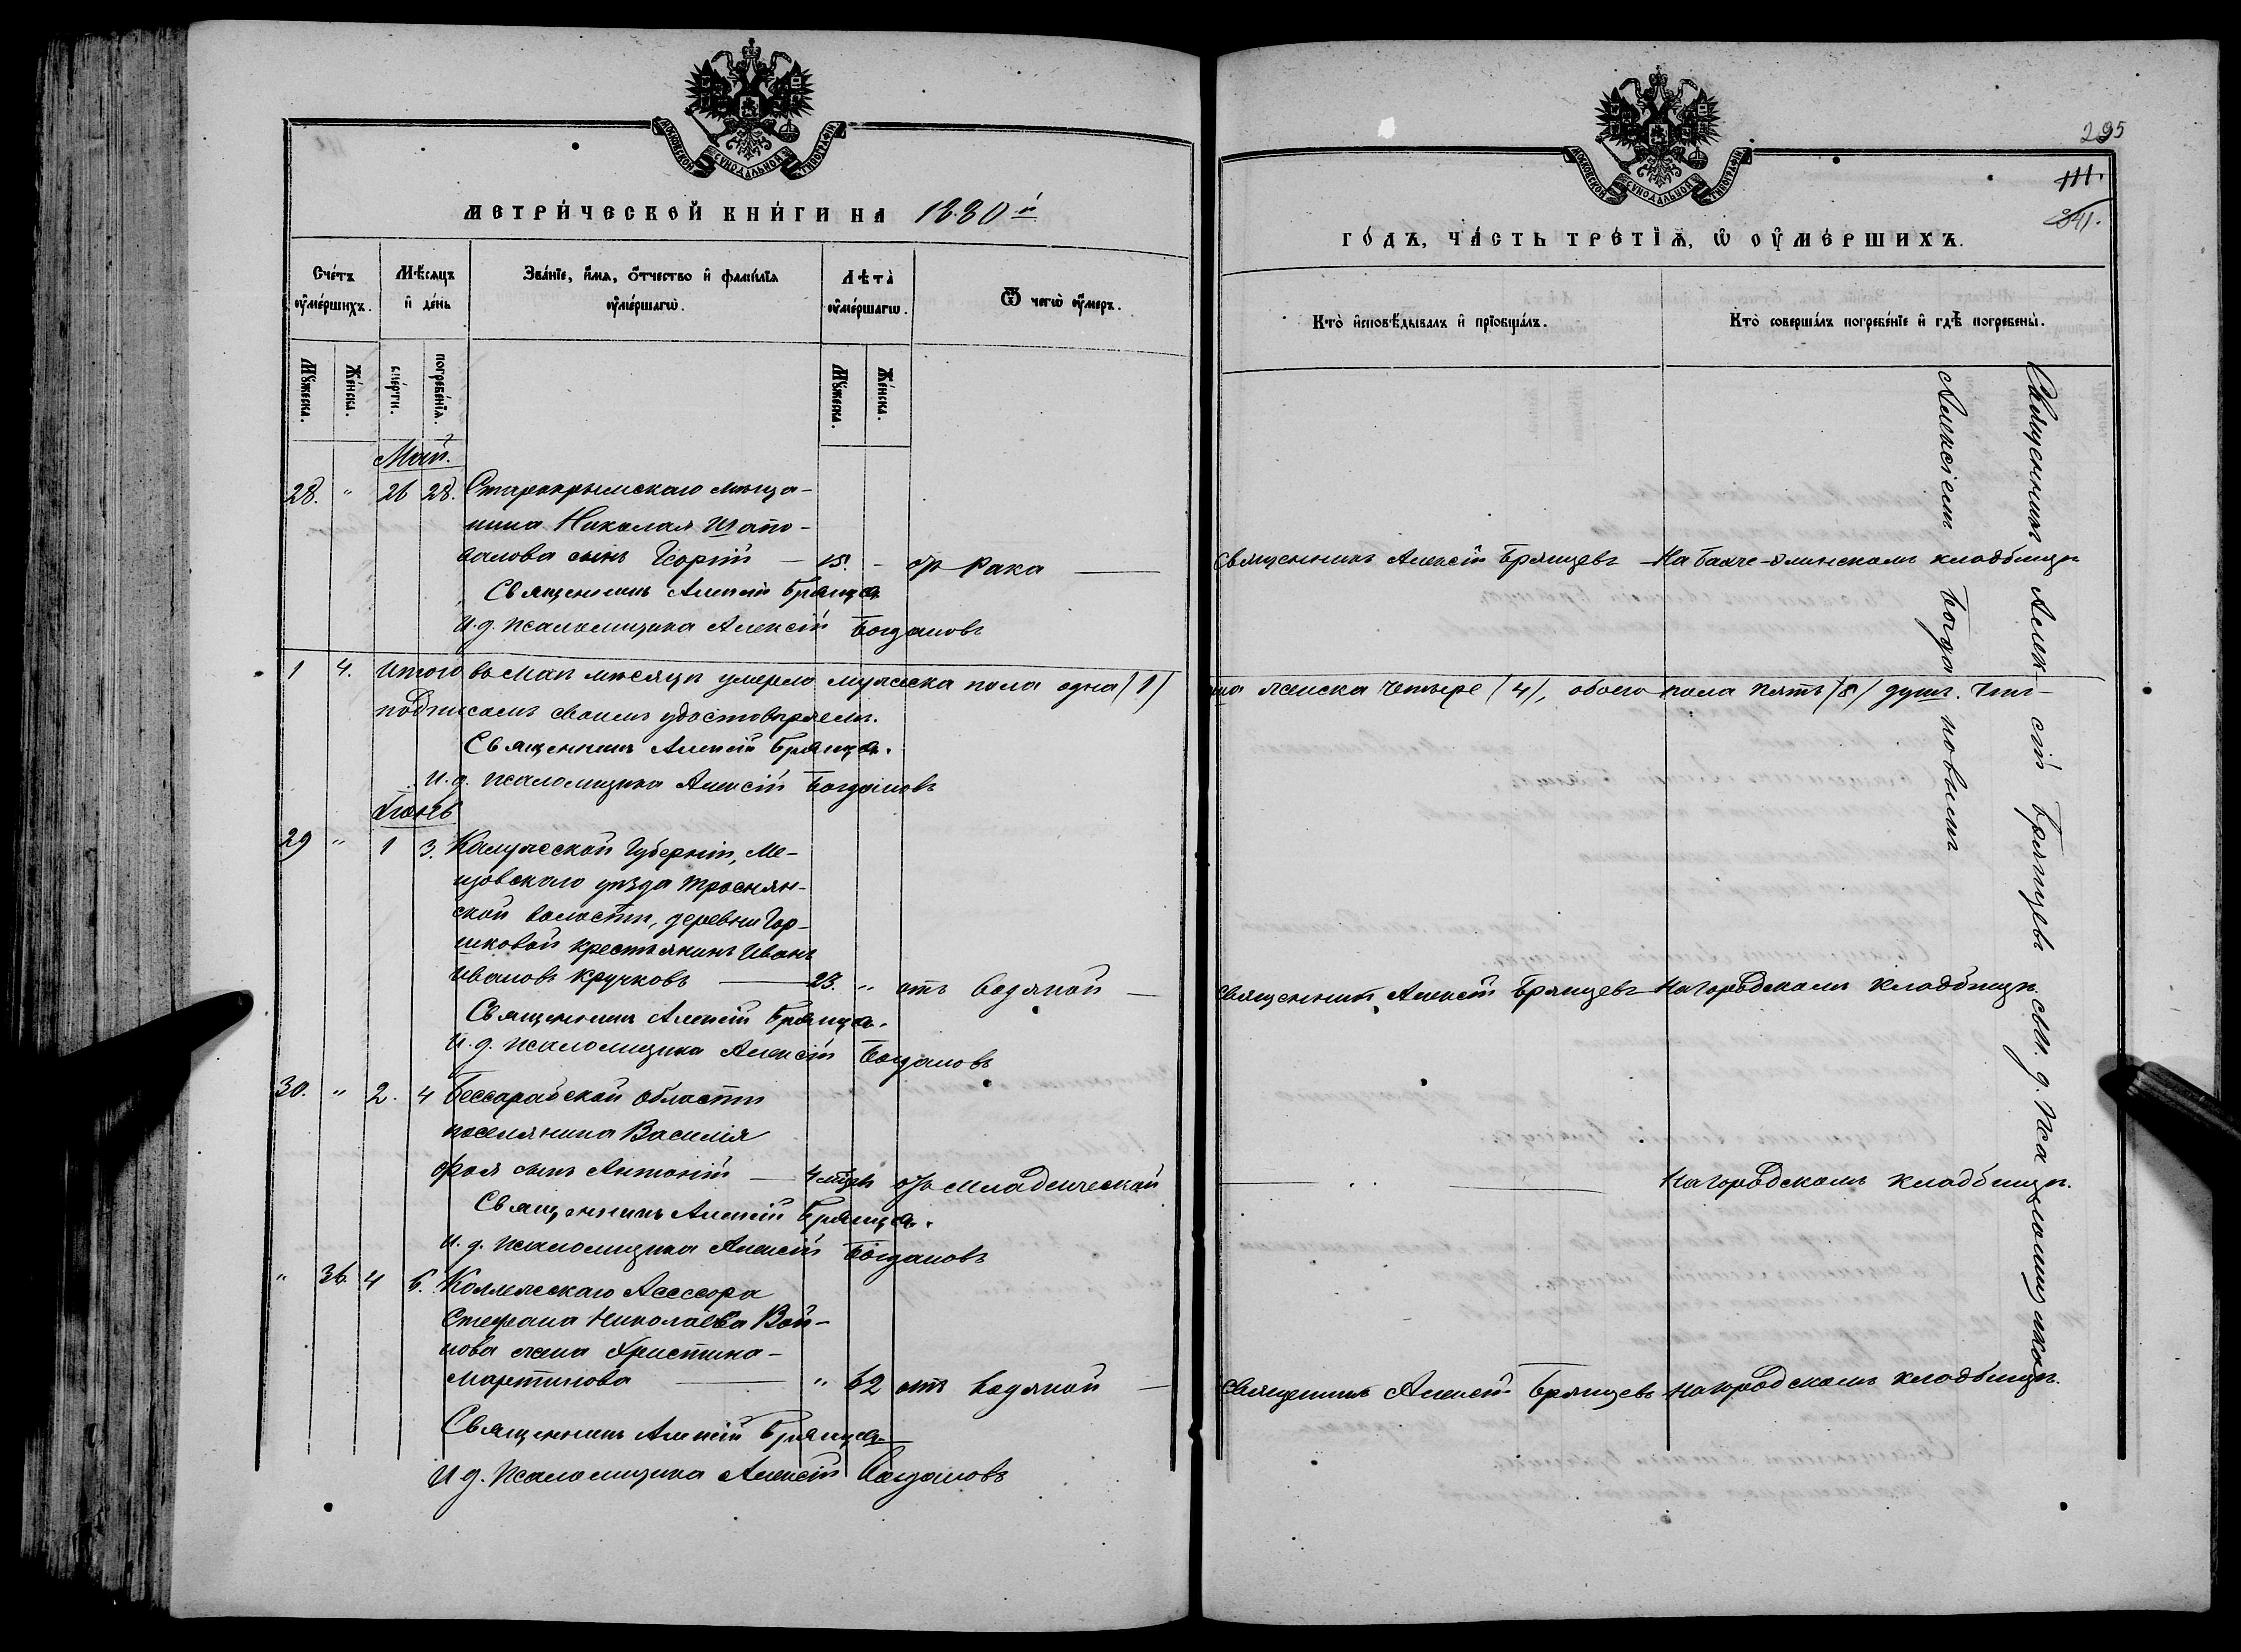 МОСКОВСКОЙ СѴНОДАЛЬНОЙ ТИПОГРАФІИ
МЕТРИЧЕСКОЙ КНИГИ НА 1880й
Счетъ оумершихъ.
Мѣсяцъ и день
Званіе, имя, отчество и фамилія оумершагѡ.
Лѣта оумершагѡ.
Ѿ чегѡ оумеръ.
Мꙋжеска.
Женска.
смерти.
погребенія.
Мꙋжеска.
Женска.
Май.
28. " 26 28. Старокрымскаго мѣща-
нина Николая Шапо-
валова сынъ Георгій — 15. - отъ рака —
Священникъ Алексій Брянцев
И. д. псаломщика Алексій Богдановъ
1 4. Итого въ Маѣ мѣсяцѣ умерло мужеска пола одна /1/
подписомъ своимъ удостовѣряемъ.
Священникъ Алексій Брянцев.
И. д. псаломщика Алексій Богдановъ
Іюнь
29 " 1 3. Калужской Губерніи, Ме-
щовскаго уѣзда Троснян-
ской волости, деревни Гор-
шковой крестьянинъ Иванъ
Ивановъ Кручковъ — 23. " отъ водяной —
Священникъ Алексій Брянцев.
И. д. псаломщика Алексій Богдановъ
30. " 2. 4 Бессарабской Области
поселянина Василія
Фоя сынъ Антоній — 4 мѣсц отъ младенческой
Священникъ Алексій Брянцев.
И. д. псаломщика Алексій Богдановъ
" 36 4 6. Коллежскаго Асессора
Стефана Николаева Вой-
нова жена Христина
Мартинова — " 62 отъ водяной —
Священникъ Алексій Брянцев
И д. Псаломщика Алексій Богдановъ
МОСКОВСКОЙ СѴНОДАЛЬНОЙ ТИПОГРАФІИ
295
111.
341.
ГОДЪ, ЧАСТЬ ТРЕТІѦ, Ѡ ОУМЕРШИХЪ.
Кто исповѣдывалъ и пріобщалъ.
Кто совершалъ погребеніе и гдѣ погребены.
Священникъ Алексій Брянцевъ — На Бахче-Элинскомъ кладбищѣ
ша женска четыре /4/, обоего пола пять /5/ душъ. Что-
Священникъ Алексій Брянцевъ На городскомъ кладбищѣ.
— " — На городскомъ кладбищѣ.
Священникъ Алексій Брянцевъ На городскомъ кладбищѣ.
Священникъ Алексій Брянцевъ съ и. д. псаломщика
Алексіемъ Богдановымъ